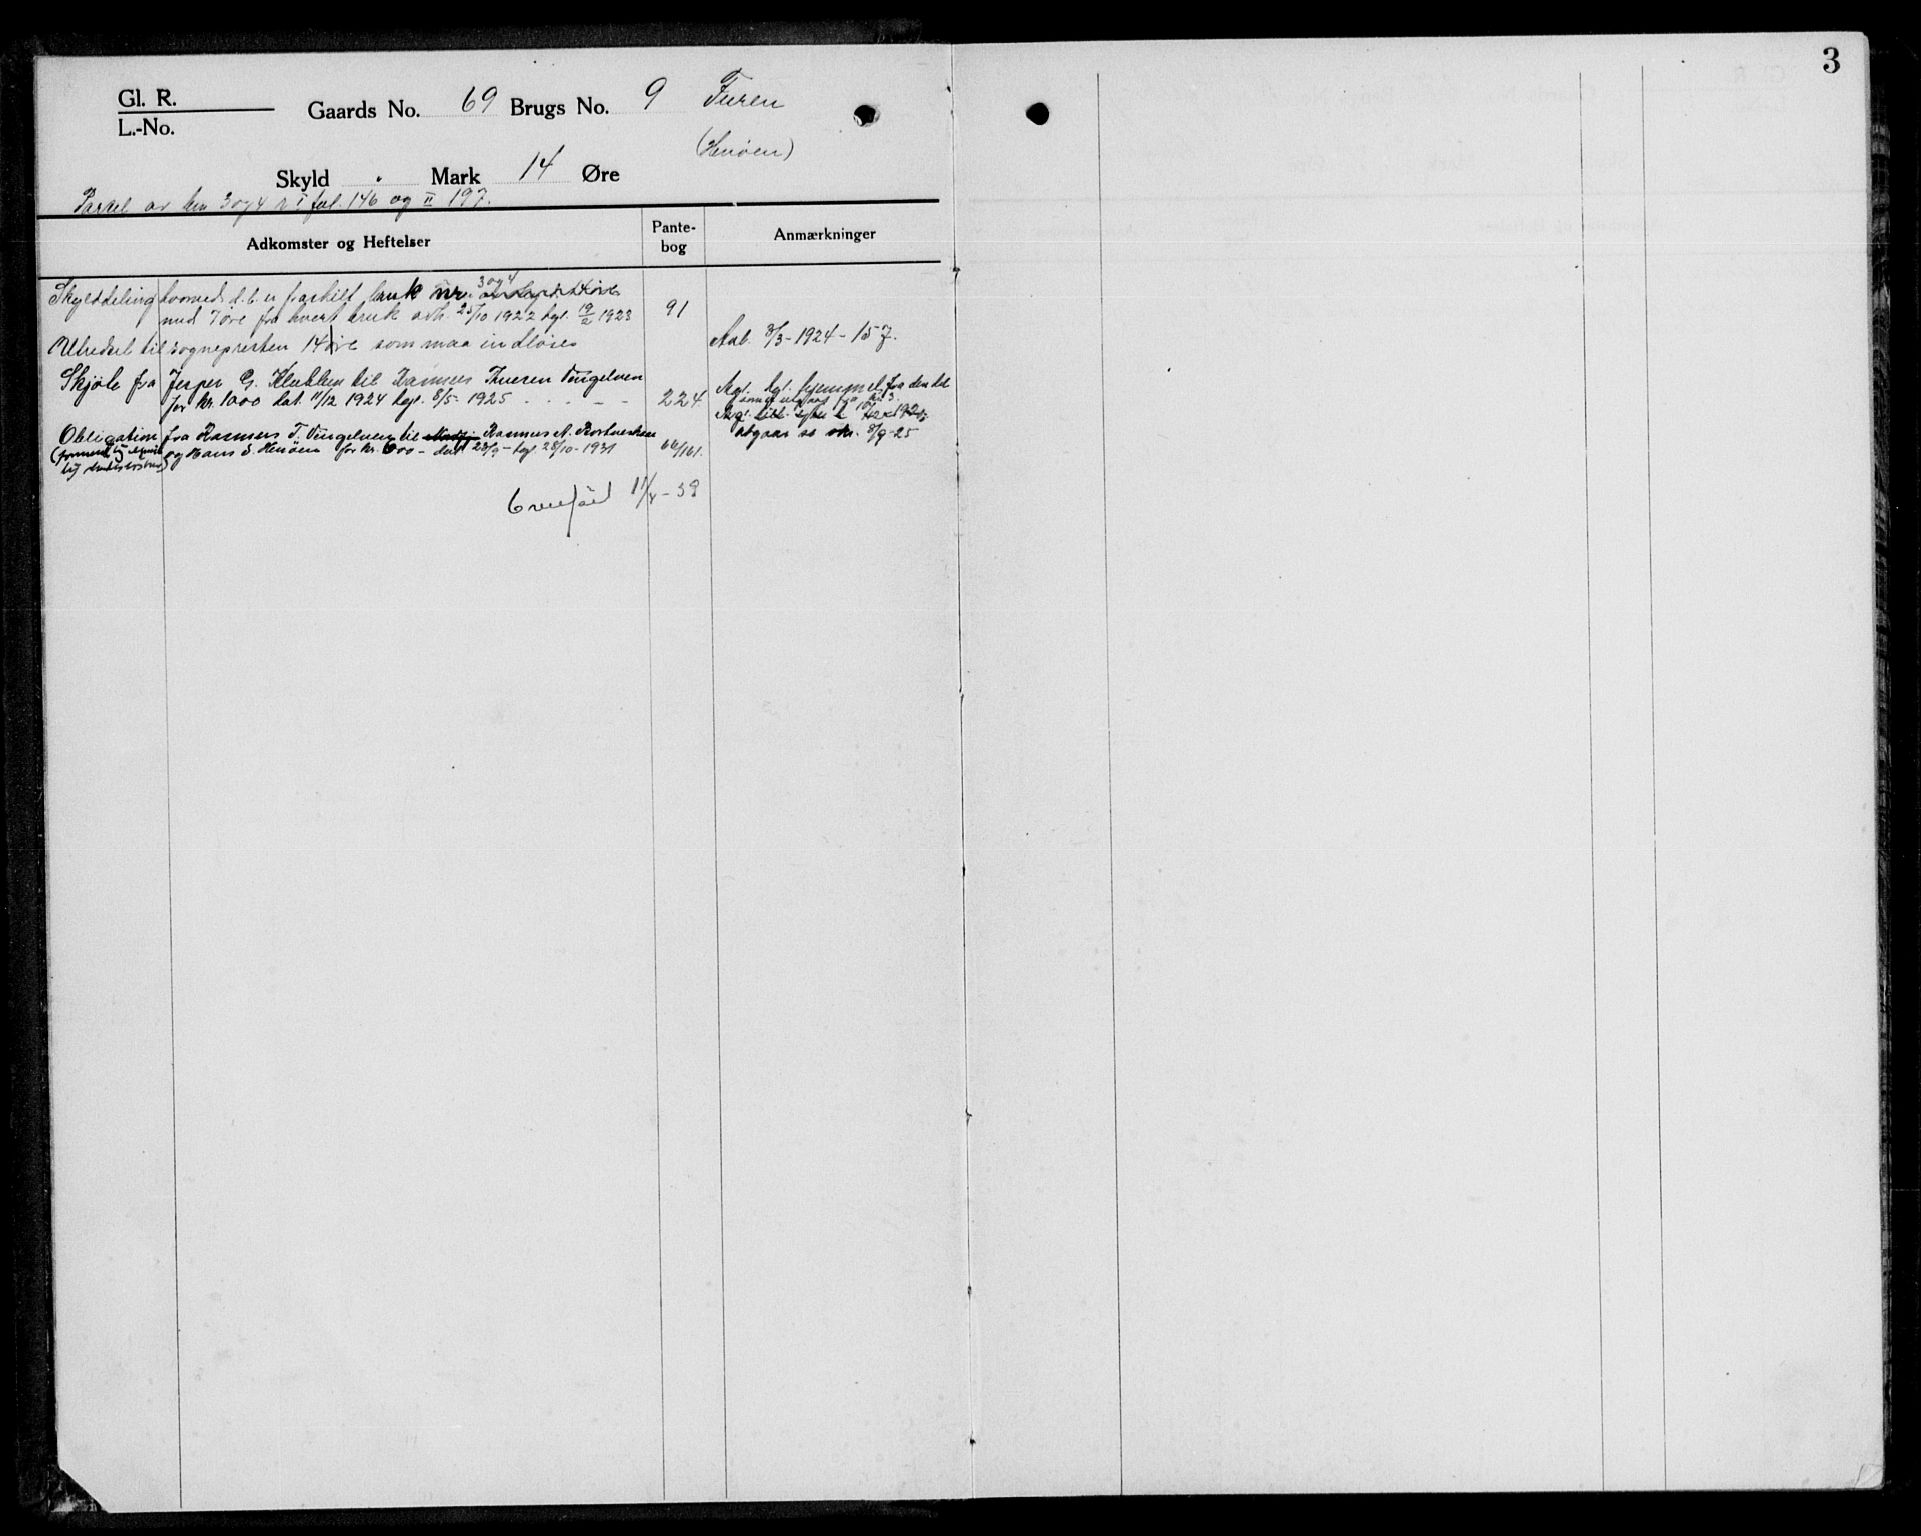 3
Gl. R.
L.-No.
Gaards No. 69 Brugs No. 9 Furen
(Henöen)
Skyld " Mark 14 Øre
Parcel av bno 3 og 4 I fol. 146 og II 197.
Adkomster og Heftelser
Pante-
bog
Anmærkninger
3 og 4
Skylddeling hvorved d. b. er fraskilt bruk nr.
med 7 øre fra hvert bruk avh. 25/10 1922 tgl. 19/2 1923 91
Utredsel til sognepresten 14 øre som maa indløses
Aab. 3/3-1924-157.
Skjöte fra Jesper G. Klubben til Rasmus Tveren Vengelven
for kr. 1000 dat. 11/12 1924 tgl. 5/5-1925 - - - - - 224.
Mgl. tgl. hjemmel fra den del
som er utgaat fra bno 3.
Mgl.
utgaar se 8/9-25
Obligation fra Rasmus T. Vengelven til Rasmus A.
og Hans S. Henöen for kr. 600 - dat 23/9 - tgl. 28/10-1931 66/161.
Overført 11/4-39